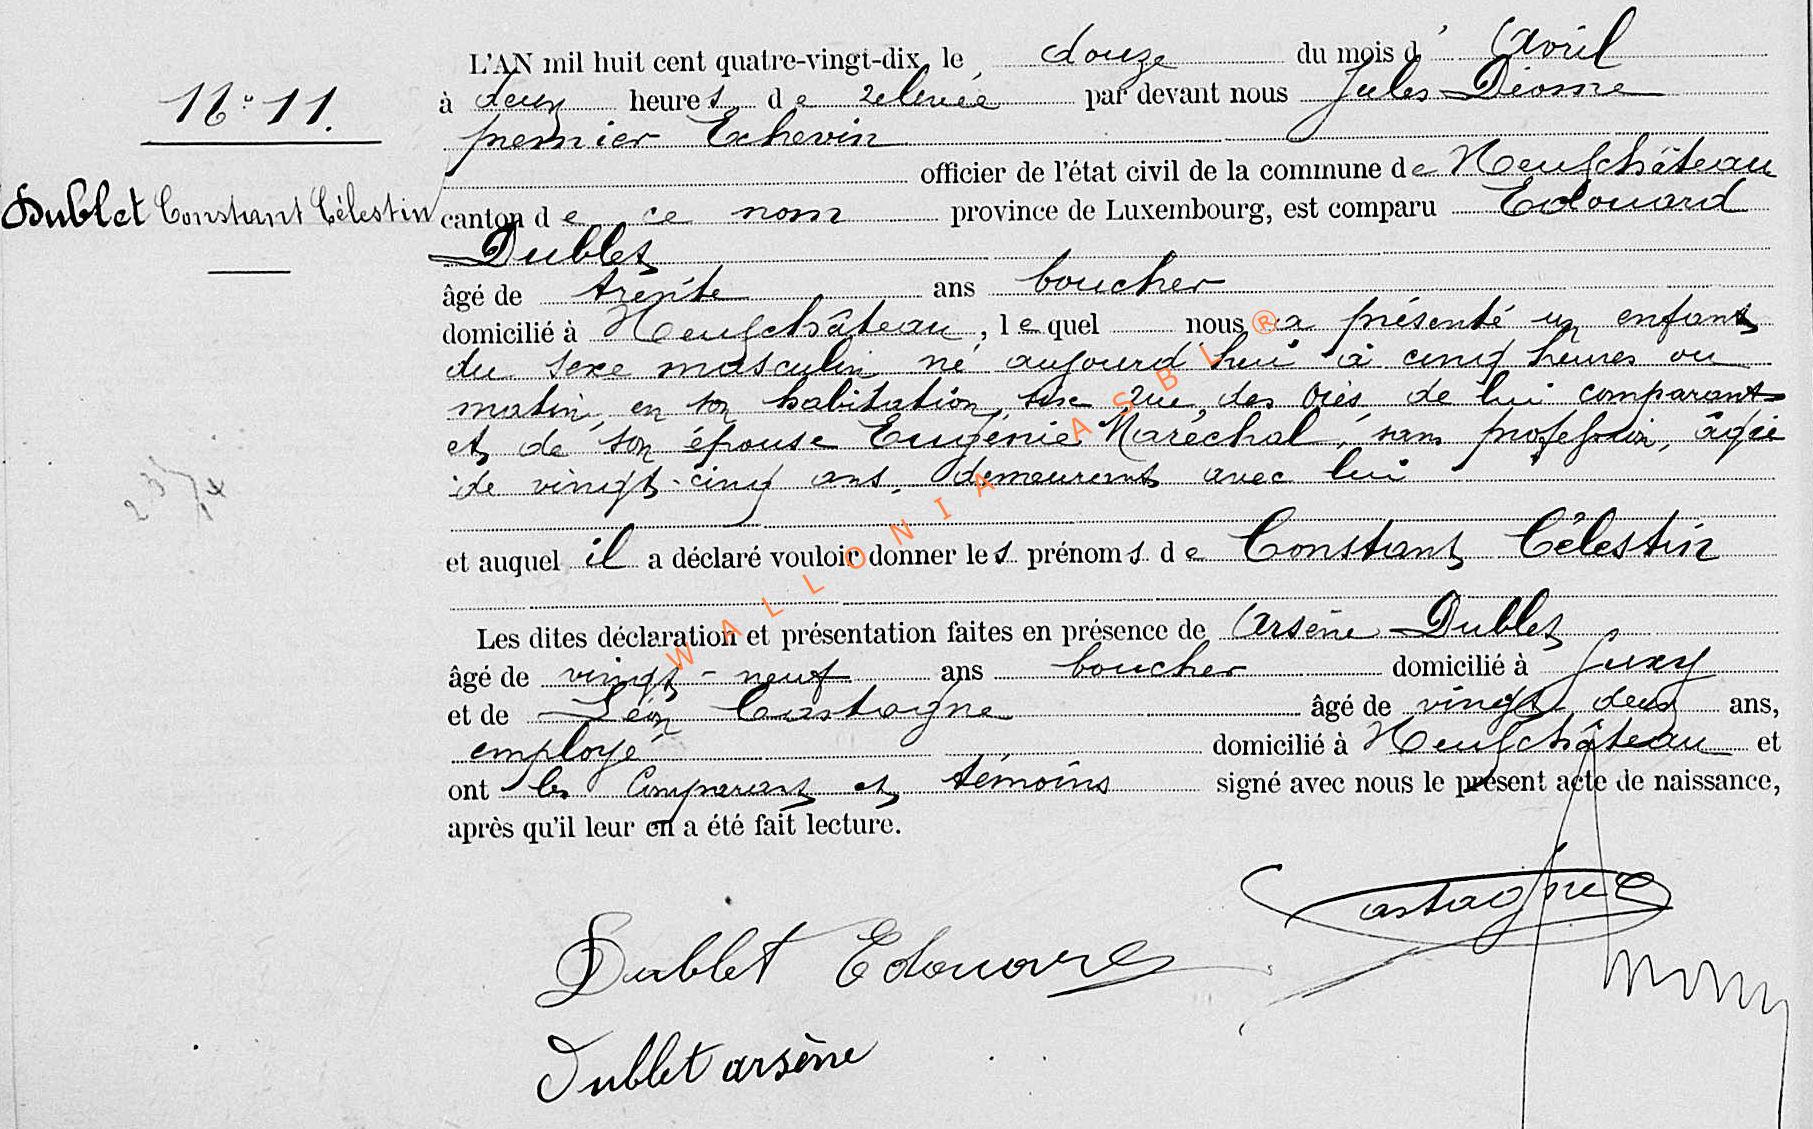 N° 11.
Dublet Constant Célestin
L'AN mil huit cent quatre-vingt-dix, le douze du mois d'Avril
à deux heures de relevée par devant nous Jules Diome
premier Echevin
officier de l'état civil de la commune de Neufchâteau
canton de ce nom province de Luxembourg, est comparu Edouard
Dublet
âgé de trente ans boucher
domicilié à Neufchâteau, lequel nous a présenté un enfant
du sexe masculin né aujourd'hui à cinq heures du
matin, en son habitation, sise rue des Oies, de lui comparant
et de son épouse Eugénie Maréchal, sans profession, âgée
de vingt-cinq ans, demeurant avec lui
et auquel il a déclaré vouloir donner les prénoms de Constant Célestin
Les dites déclaration et présentation faites en présence de Arsène Dublet
âgé de vingt-neuf ans boucher domicilié à Juxy
et de Léon Castagne âgé de vingt deux ans,
employé domicilié à Neufchâteau et
ont les Comparant et témoins signé avec nous le présent acte de naissance,
après qu'il leur en a été fait lecture.
Castagne
Dublet Edouard
Dublet arsène
WALLONIA ASBL ®